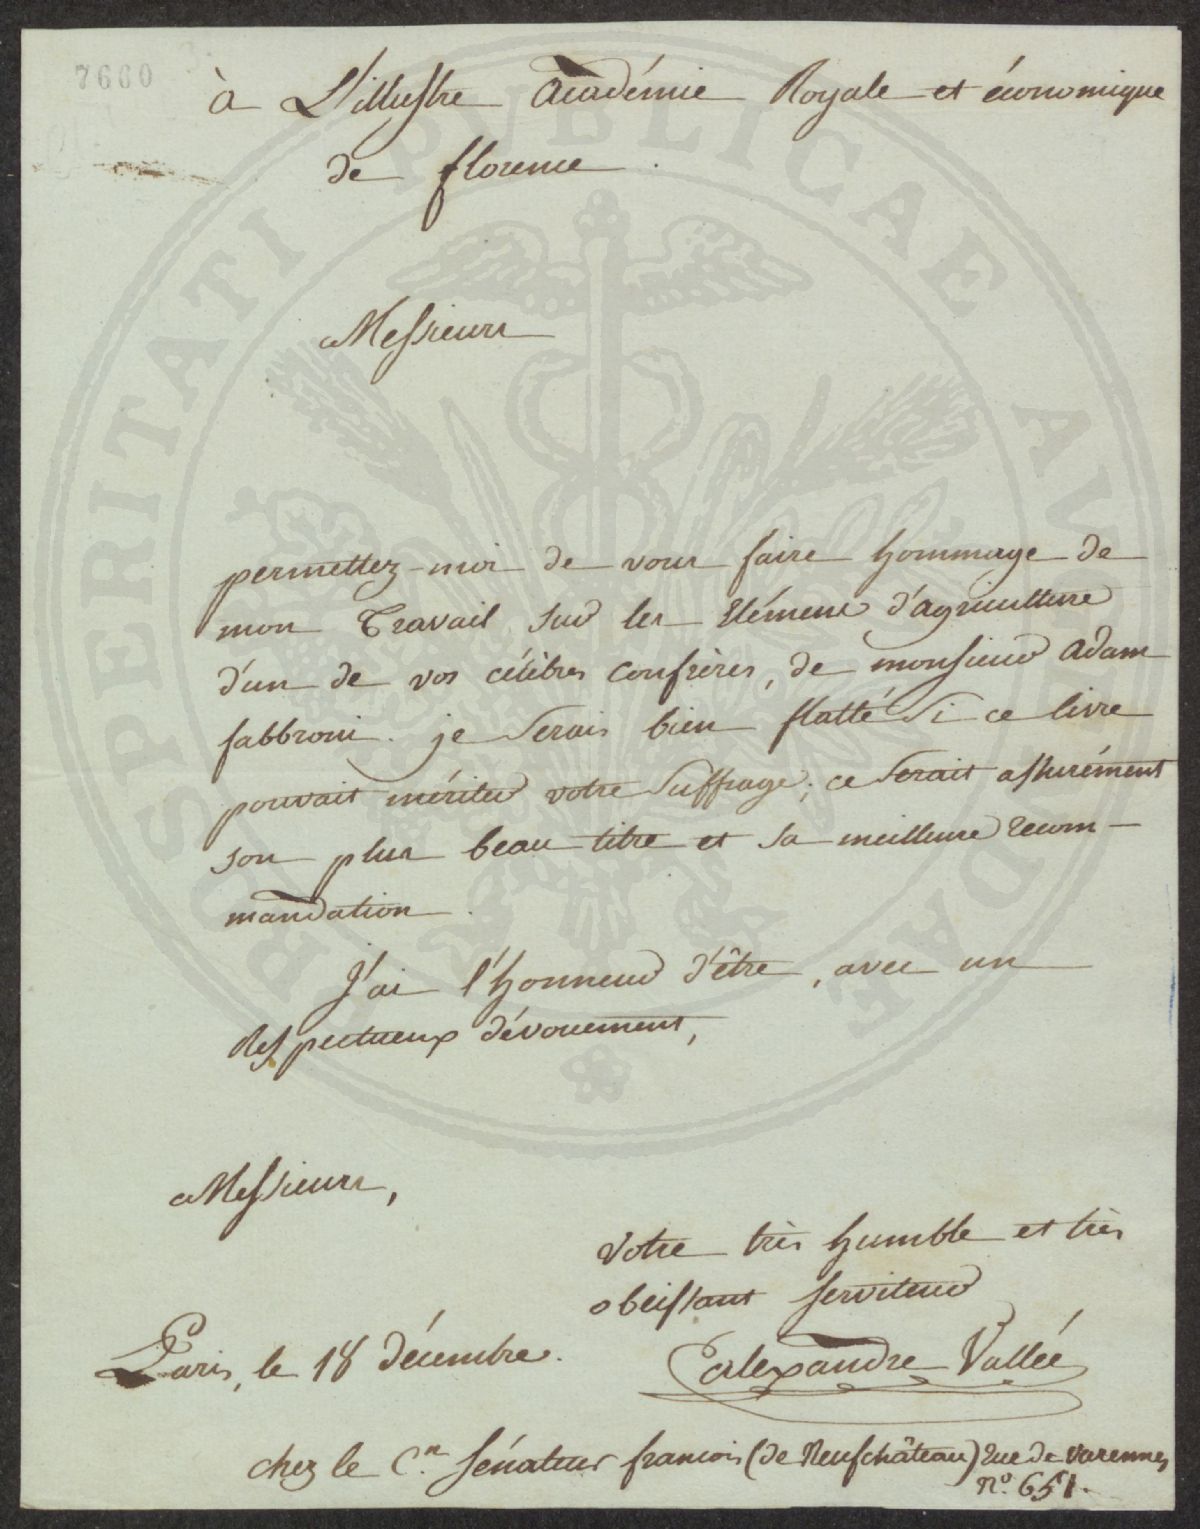 7660
à L'illustre académie Royale et économique
de florence.
Messieurs
permettez-moi de vous faire hommage de
mon Travail sur les Elémens d'agriculture
d'un de vos célèbres confrères, de monsieur adam
fabbroni. je serais bien flatté si ce livre
pouvait mériter votre suffrage; ce serait assurément
son plus beau titre et sa meilleure recom-
mandation.
J'ai l'honneur d'être, avec un
Respectueux dévouement,
Messieurs,
Votre très humble et très
obeissant serviteur
Alexandre Vallée
Paris, le 18 décembre.
chez le C.en Sénateur francois (de Neufchâteau) rue de varennes
N.o 651.
PROSPERITATI PVBLICAE AVGENDAE